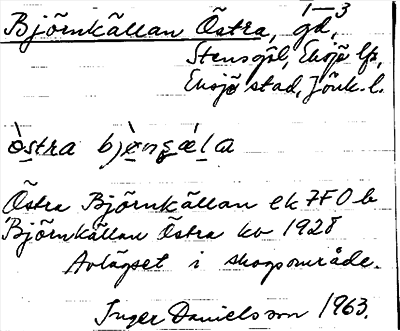 Björnkällan Östra, gd, 1–3
Stensgöl, Eksjö lfs,
Eksjö stad, Jönk. l.
östra
Östra Björnkällan ek 7F0b
Björnkällan Östra kv 1928
Avlägset i skogsområde.
Inger Danielsson 1963.